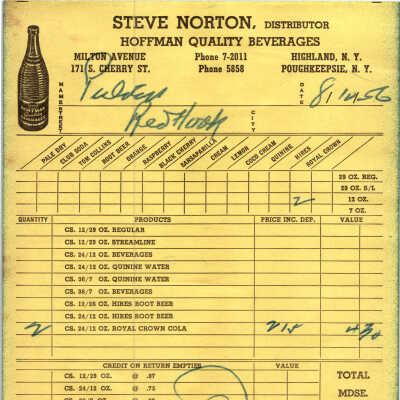 STEVE NORTON, DISTRIBUTOR
HOFFMAN QUALITY BEVERAGES
MILTON AVENUE Phone 7-2011 HIGHLAND, N. Y.
171 S. CHERRY ST. Phone 5858 POUGHKEEPSIE, N. Y.
NAME DATE 8/14/56
STREET Red Hook CITY
PALE DRY CLUB SODA TOM COLLINS ROOT BEER ORANGE RASPBERRY BLACK CHERRY SARSAPARILLA CREAM LEMON COCO CREAM QUININE HIRES ROYAL CROWN
29 OZ. REG.
29 OZ. S/L
2 12 OZ.
7 OZ.
QUANTITY PRODUCTS PRICE INC. DEP. VALUE
CS. 12/29 OZ. REGULAR
CS. 12/29 OZ. STREAMLINE
CS. 24/12 OZ. BEVERAGES
CS. 24/12 OZ. QUININE WATER
CS. 36/7 OZ. QUININE WATER
CS. 36/7 OZ. BEVERAGES
CS. 12/26 OZ. HIRES ROOT BEER
CS. 24/12 OZ. HIRES ROOT BEER
2 CS. 24/12 OZ. ROYAL CROWN COLA 215 430
CREDIT ON RETURN EMPTIES VALUE
CS. 12/29 OZ. @ .97 TOTAL
CS. 24/12 OZ. @ .75 MDSE.